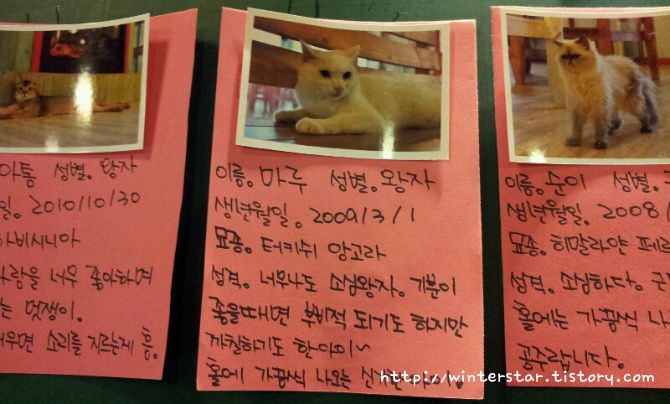 아통 성별. 왕자
일. 2010/10/30
아비시니아
사람을 너무 좋아하며
는 멋쟁이.
우면 소리를 지르는게 흠.
이름. 마루 성별. 왕자
생년월일. 2009/3/1
묘종. 터키쉬 앙고라
성격. 너무나도 소심왕자. 기분이
좋을때면 부비적 되기도 하지만
까칠하기도 한아이~
홀에 가끔씩 나오는
이름. 순이 성별.
생년월일. 2008/
묘종. 히말라얀 페르
성격. 소심하다.
홀에는 가끔씩 나
공주랍니다.
http://winterstar.tistory.com